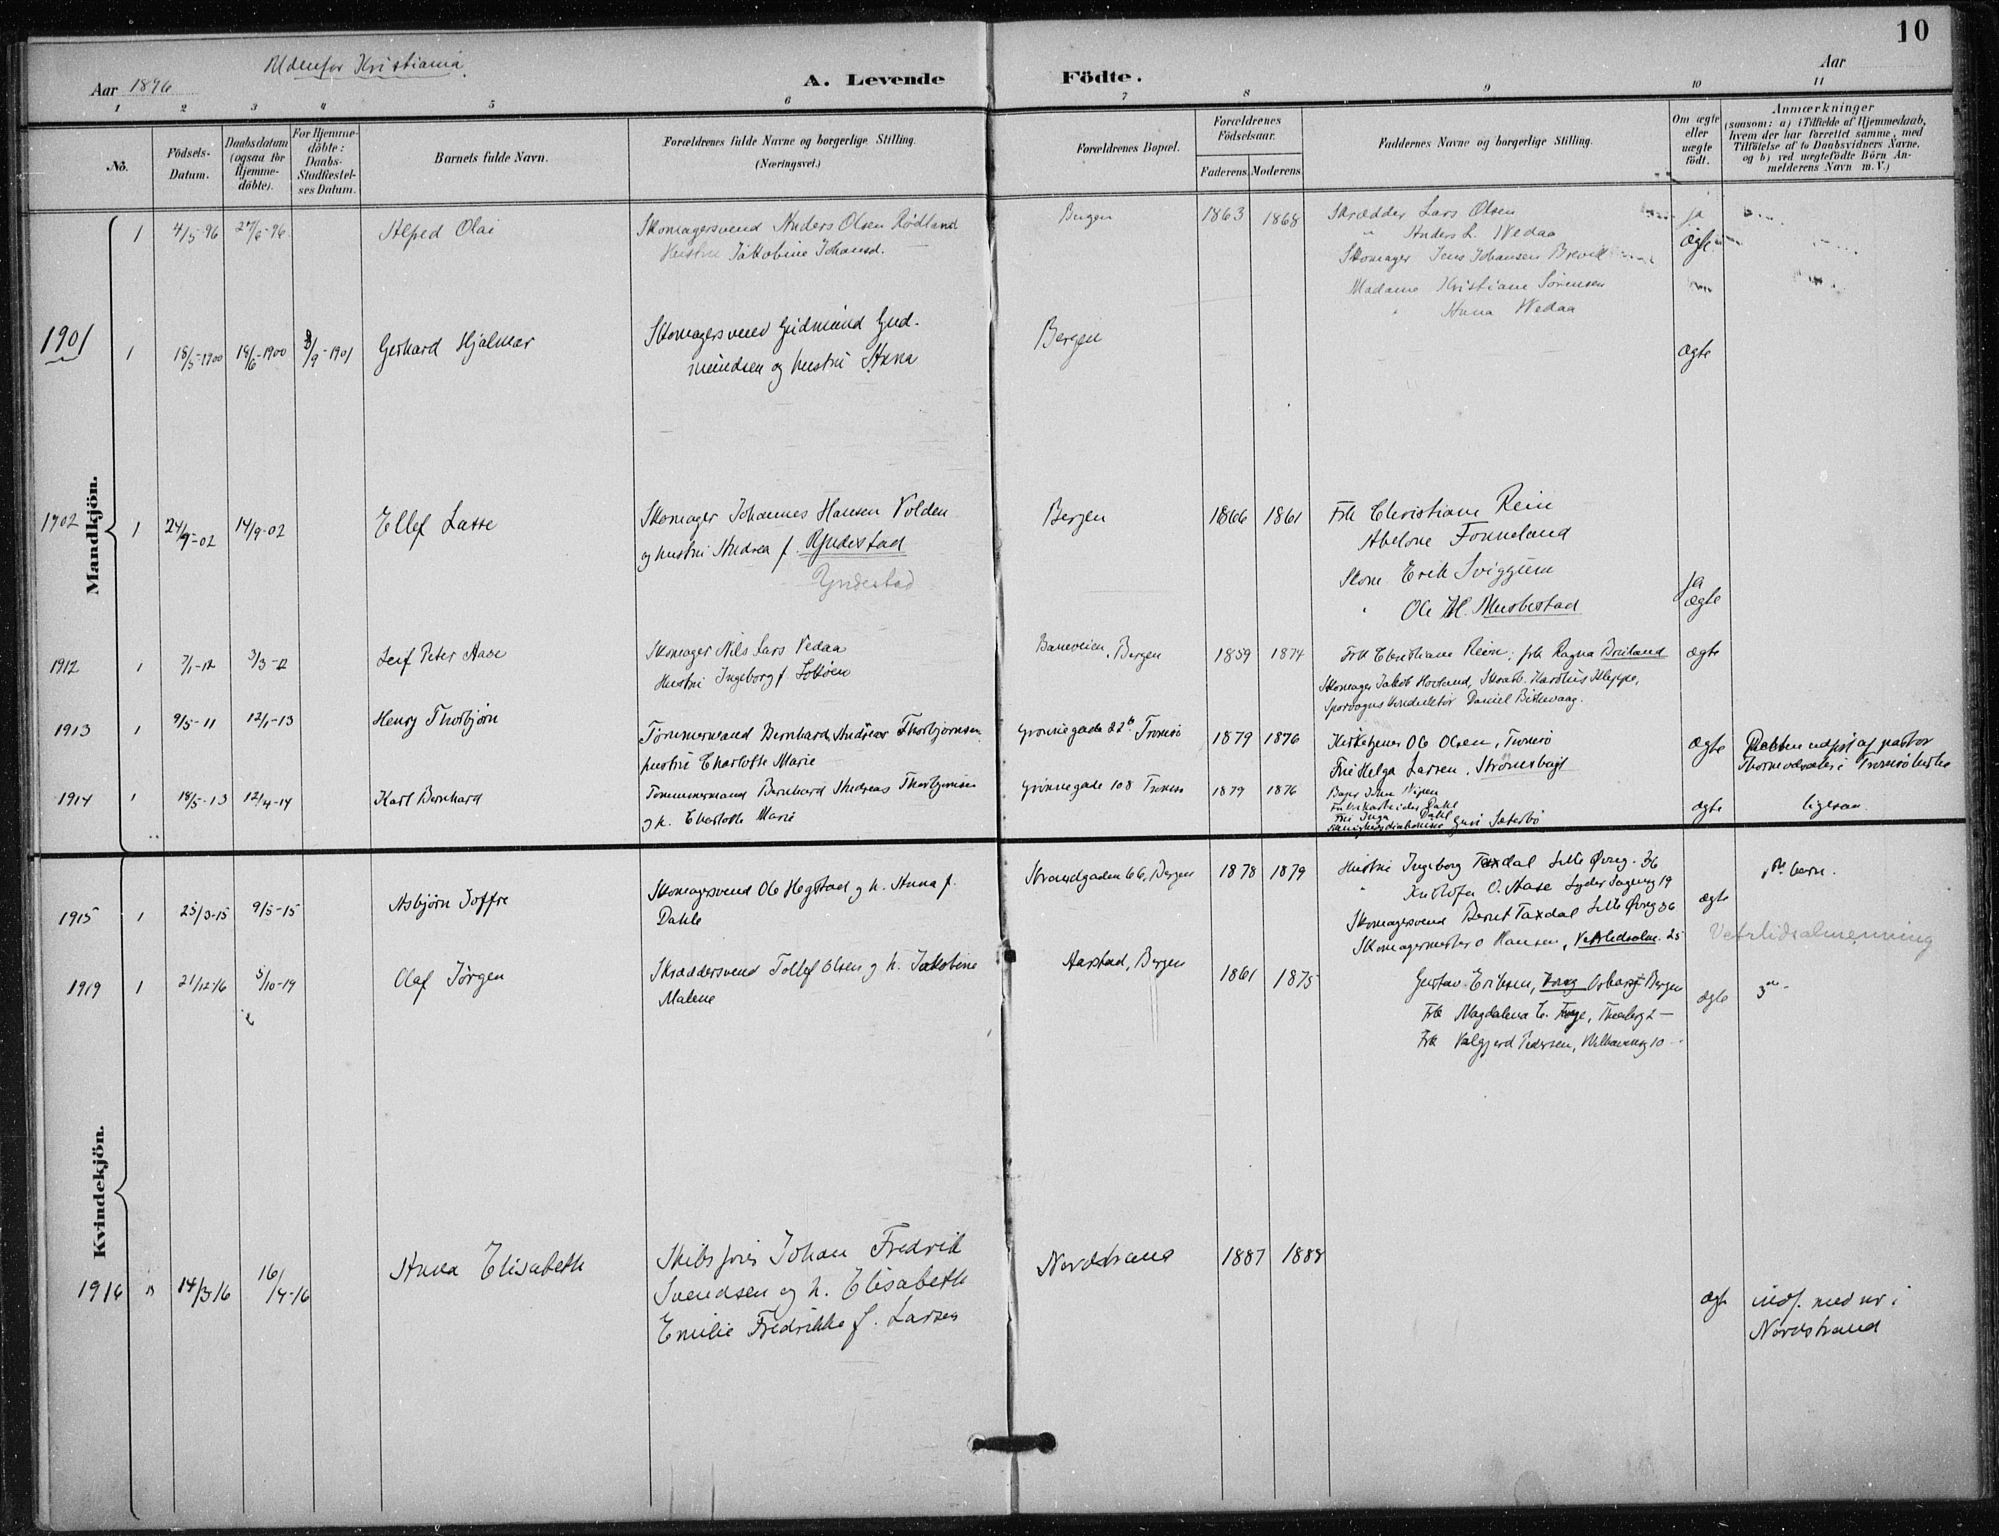 10
Udenfor Kristiania
Aar 1896
A. Levende Födte.
Aar
1 2 3 4 5 6 7 8 9 10 11
No.
Födsels-Datum.
Daabsdatum (ogsaa for Hjemmedöbte).
For Hjemmedöbte: Daabs-Stadfæstelses Datum.
Barnets fulde Navn.
Forældrenes fulde Navne og borgerlige Stilling.
(Næringsvei.)
Forældrenes Bopæl.
Forældrenes Födselsaar.
Faderens. Moderens.
Faddernes Navne og borgerlige Stilling.
Om ægte eller uægte födt.
Anmærkninger
(saasom: a) i Tilfælde af Hjemmedaab, hvem der har forrettet samme, med Tilföielse af to Daabsvidners Navne, og b) ved uægtefödte Börn Anmelderens Navn m. V.)
Mandkjön.
1 4/5-96 27/6-96 Alfred Olai
Skomagersvend Anders Olsen Rødland
Hustru Jakobine Johansd.
Bergen 1863 1868
Skrædder Lars Olsen
" Anders L. Wedaa
Skomager Jens Johansen Brevik
Madame Kristiane Sørensen
" Anna Wedaa
ja
ægte
1901
1 18/5-1900 18/6-1900 8/9-1901 Gerhard Hjalmar
Skomagersvend Gudmund Gud-
mundsen og hustru Anna
Bergen
ægte
1902 1 14/9-02 Ellef Lasse
Skomager Johannes Hansen Volden
og hustru Andrea f. Ryndestad
Yndestad
Bergen 1866 1861
Frk Christiane Rein
Abelone Fonneland
Skom. Erik Sviggum
" Ole H. Musbestad
ja
ægte
1912 1 7/1-12 3/3-12 Leif Peter Aase
Skomager Nils Lars Vedaa
Hustru Ingeborg f.
Baneveien, Bergen 1859 1874
Frk Christiane Rein, frk Ragna Breiland
Skomager Jakob Hovland, Karolus Kleppe,
Sporvogns Konduktør Daniel Birkevaag.
ægte
1913 1 9/5-11 12/1-13 Henry Thorbjørn
Tømmermand Bernhard Andreas Thorbjørnsen
hustru Charlotte Marie
Grønnegade 22b Tromsø 1879 1876
Kirketjener Ole Olsen, Tromsø
Fru Helga Larsen, Strømsbugt
ægte
Daaben udført af pastor
i Tromsø kirke
1914 1 18/5-13 12/4-14 Karl Bernhard
Tømmermand Bernhard Andreas Thorbjørnsen
og h. Charlotte Marie
Grønnegade 108 Tromsø 1879 1876
Bager John
Fabrikarbeider Dahl
Fru Inga Dahl
Guri Sæterbø
ægte
ligesaa
Kvindekjön.
1915 1 25/3-15 9/5-15 Asbjørn Joffre
Skomagersvend Ole Hegstad og h. Anna f.
Dahle
Strandgaden 66, Bergen 1878 1879
Hustru Ingeborg Taxdal Lille Øvreg. 36
" Kristofa O. Aase Lyder Sagensg 19
Skomagersvend Bernt Taxdal Lille Øvreg 36
Skomagermester O Hansen, Vetrlidsalm. 25
ægte
barn.
Vetrlidsalmenning
1919 1 21/12-16 5/10-19 Olaf Jörgen
Skræddersvend Tollef Olsen og h. Jakobine
Malene
Aarstad, Bergen 1861 1875
Gustav Eriksen, Bergen
Frk Magdalena E. 2 —
Frk Valgjerd Pedersen, Welhavensg 10 —
ægte
3
1916 14/3-16 16/4-16 Anna Elisabeth
Skibsfører Johan Fredrik
Svendsen og h. Elisabeth
Emilie Fredrikke f. Larsen
Nordstrand 1887 1888
ægte
indf. med nr i
Nordstrand